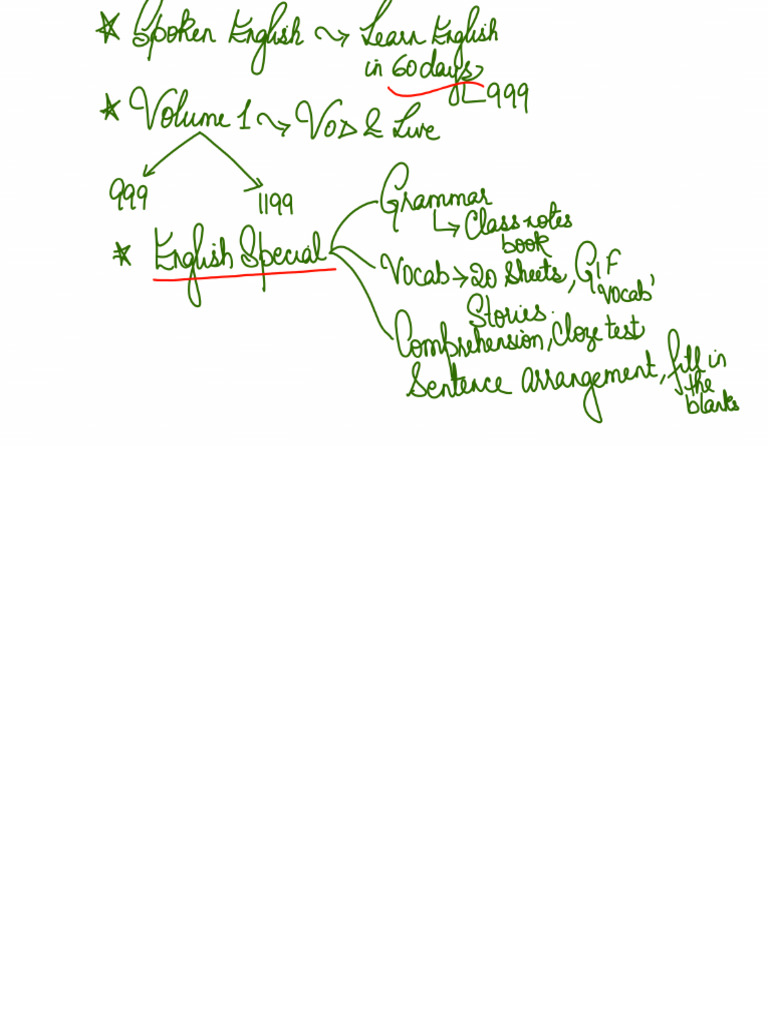 ☆ Spoken English ~> Learn English
in 60 days
999
☆ Volume 1 ~> VOD & Live
999 1199
Grammar
↳ Class notes
book
☆ English Special
Vocab → 20 Sheets, GIF
Vocab'
Stories.
Comprehension, Cloze test
Sentence arrangement, fill in
the
blanks